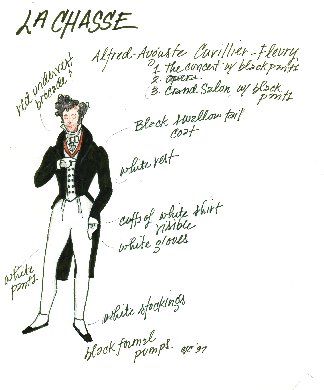 LA CHASSE
Alfred-Auguste Cuvillier-Fleury
1. The concert w/ black pants
2. Opera
3. Grand Salon w/ black
pants
red undervest
brocade!
Black swallow tail
coat
white vest
cuffs of white shirt
visible
white gloves
white
pants
white stockings
black formal
pumps.